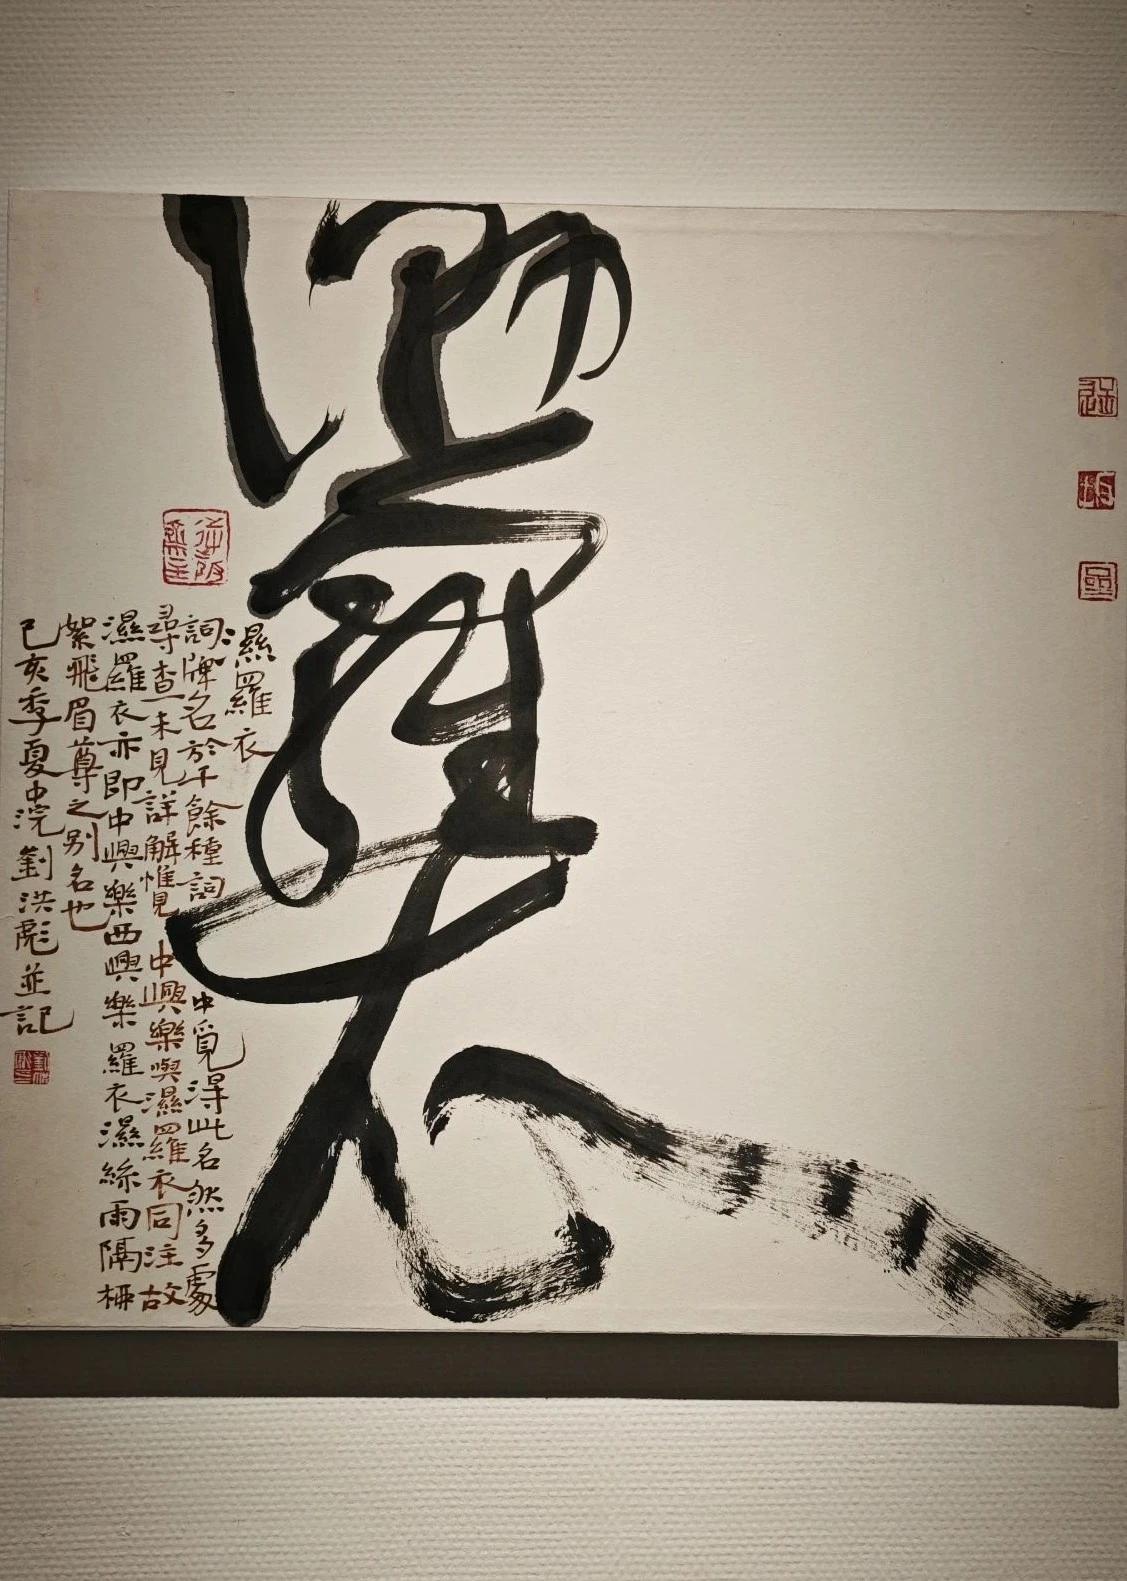 濕羅衣
濕羅衣
詞牌名於千餘種詞中覓得此名然多處
尋查未見詳解惟見中興樂與濕羅衣同注故
濕羅衣亦即中興樂西興樂羅衣濕絲雨隔
絮飛眉尊之别名也
己亥季夏中浣劉洪彪並記